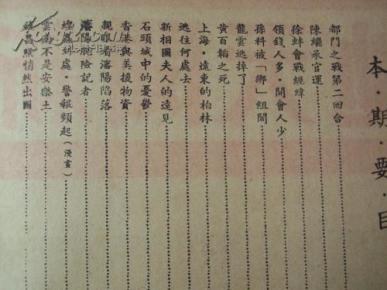 本·期·要·目
都門之戰第二回合
陳繼承官運
徐蚌會戰經緯
領錢人多·開會人少
孫科被「鄉」組閣
龍雲逃掉了
黃百韜之死
上海·遠東的柏林
逃往何處去
新相國夫人的遠見
石頭城中的憂鬱
香港與美援物資
親眼看瀋陽陷落
瀋陽脫險記者
總為到處·警報頻起(漫畫)
雲南不是安樂土
悄然出國